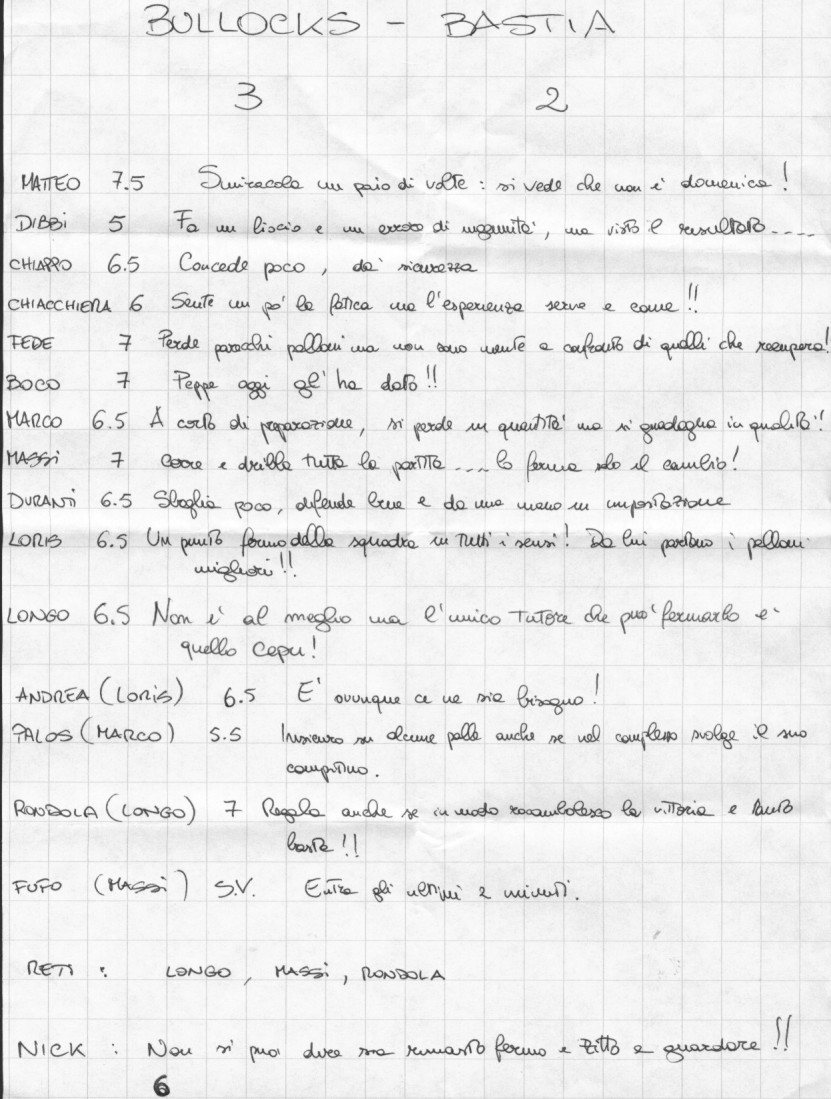 BULLOCKS - BASTIA
3 2
MATTEO 7.5 Smiracola un paio di volte : si vede che non e' domenica !
DIBBI 5 Fa un liscio e un di ingenuita', ma visto il risultato ....
CHIAPPO 6.5 Concede poco, da' sicurezza
CHIACCHIERA 6 Sente un po' la fatica ma l'esperienza serve e come !!
FEDE 7 Perde parecchi palloni ma non sono niente a confronto di quelli che recupera!
BOCO 7 Peppe oggi gl' ha dato !!
MARCO 6.5 A corto di preparazione, si perde in quantita' ma si guadagna in qualita' !
MASSI 7 Corre e dribla tutta la partita .... lo ferma solo il cambio !
DURANTI 6.5 Sbaglia poco, difende bene e da una mano in impostazione
LORIS 6.5 Un punto fermo della squadra in tutti i sensi ! Da lui partono i palloni
migliori !!
LONGO 6.5 Non e' al meglio ma l'unico tutore che puo' fermarlo e'
quello Cepu !
ANDREA (LORIS) 6.5 E' ovunque ce ne sia bisogno !
PALOS (MARCO) 5.5 Insicuro su alcune palle anche se nel complesso svolge il suo
compitino.
RONDOLA (LONGO) 7 Regala anche se in modo rocambolesco la vittoria e tanto
basta !!
FUFO (MASSI) S.V. Entra gli ultimi 2 minuti.
RETI : LONGO, MASSI, RONDOLA
NICK : Non si puoi dire sia rimasto fermo e zitto a guardare !!
6